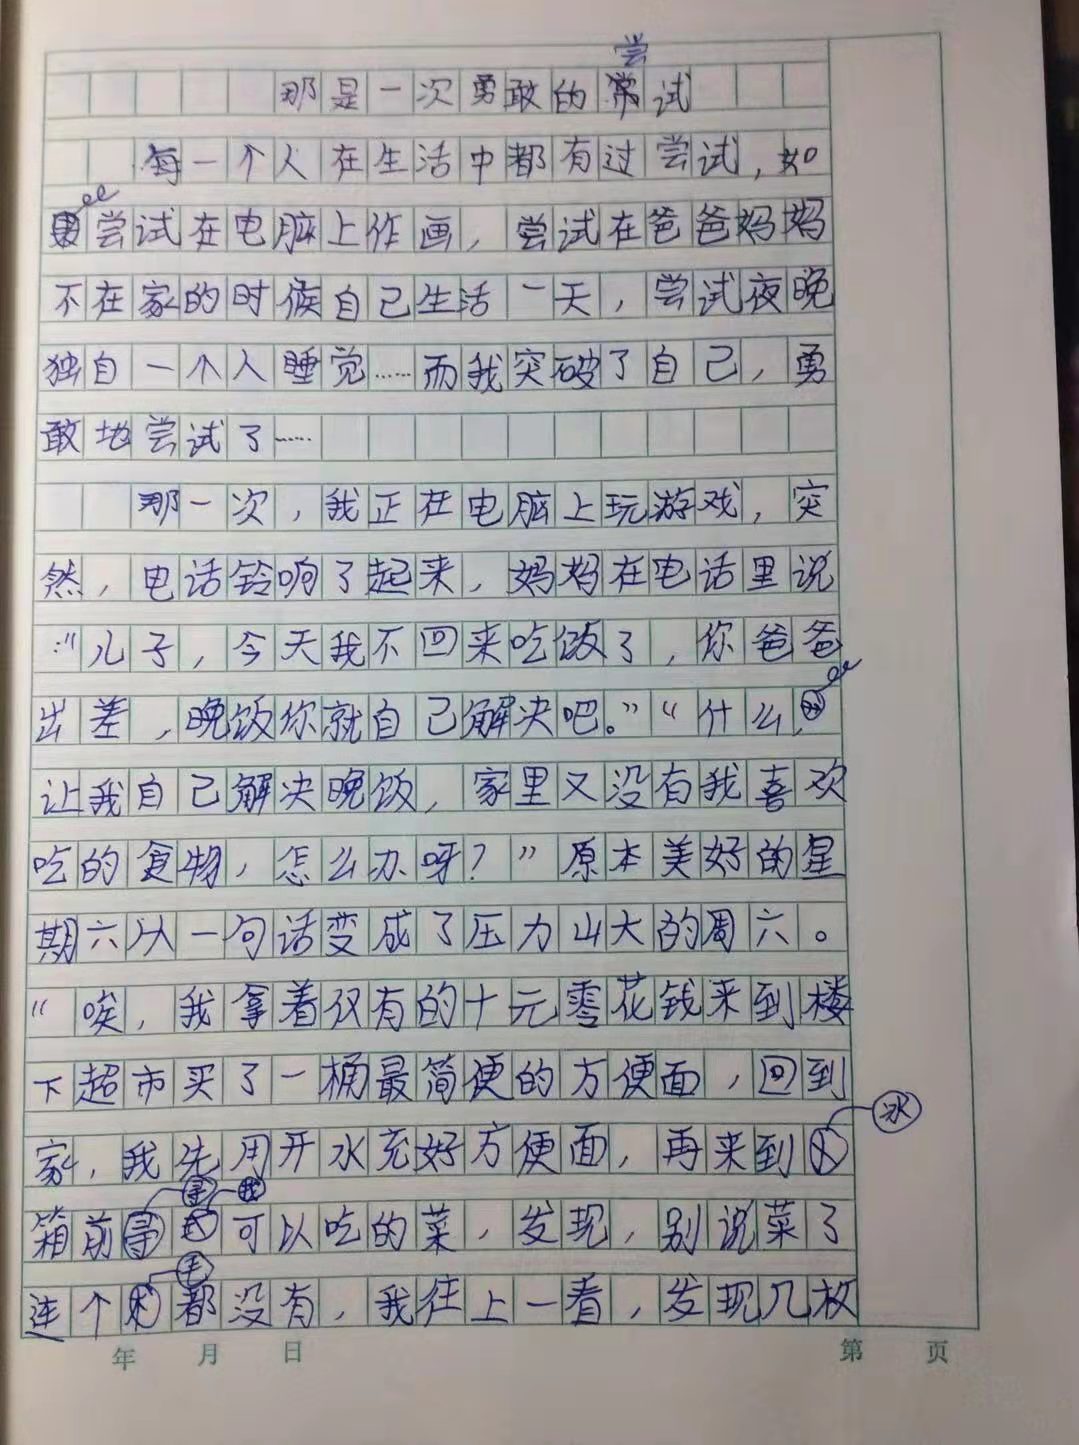 那是一次勇敢的尝试
每一个人在生活中都有过尝试，如
尝试在电脑上作画，尝试在爸爸妈妈
不在家的时候自己生活一天，尝试夜晚
独自一个人睡觉……而我突破了自己，勇
敢地尝试了……
那一次，我正在电脑上玩游戏，突
然，电话铃响了起来，妈妈在电话里说
：“儿子，今天我不回来吃饭了，你爸爸
出差，晚饭你就自己解决吧。”“什么，
让我自己解决晚饭，家里又没有我喜欢
吃的食物，怎么办呀？”原本美好的星
期六从一句话变成了压力山大的周六。
“唉，我拿着仅有的十元零花钱来到楼
下超市买了一桶最简便的方便面，回到
家，我先用开水充好方便面，再来到冰
箱前寻找可以吃的菜，发现，别说菜了
连个毛都没有，我往上一看，发现几枚
年 月 日
第 页